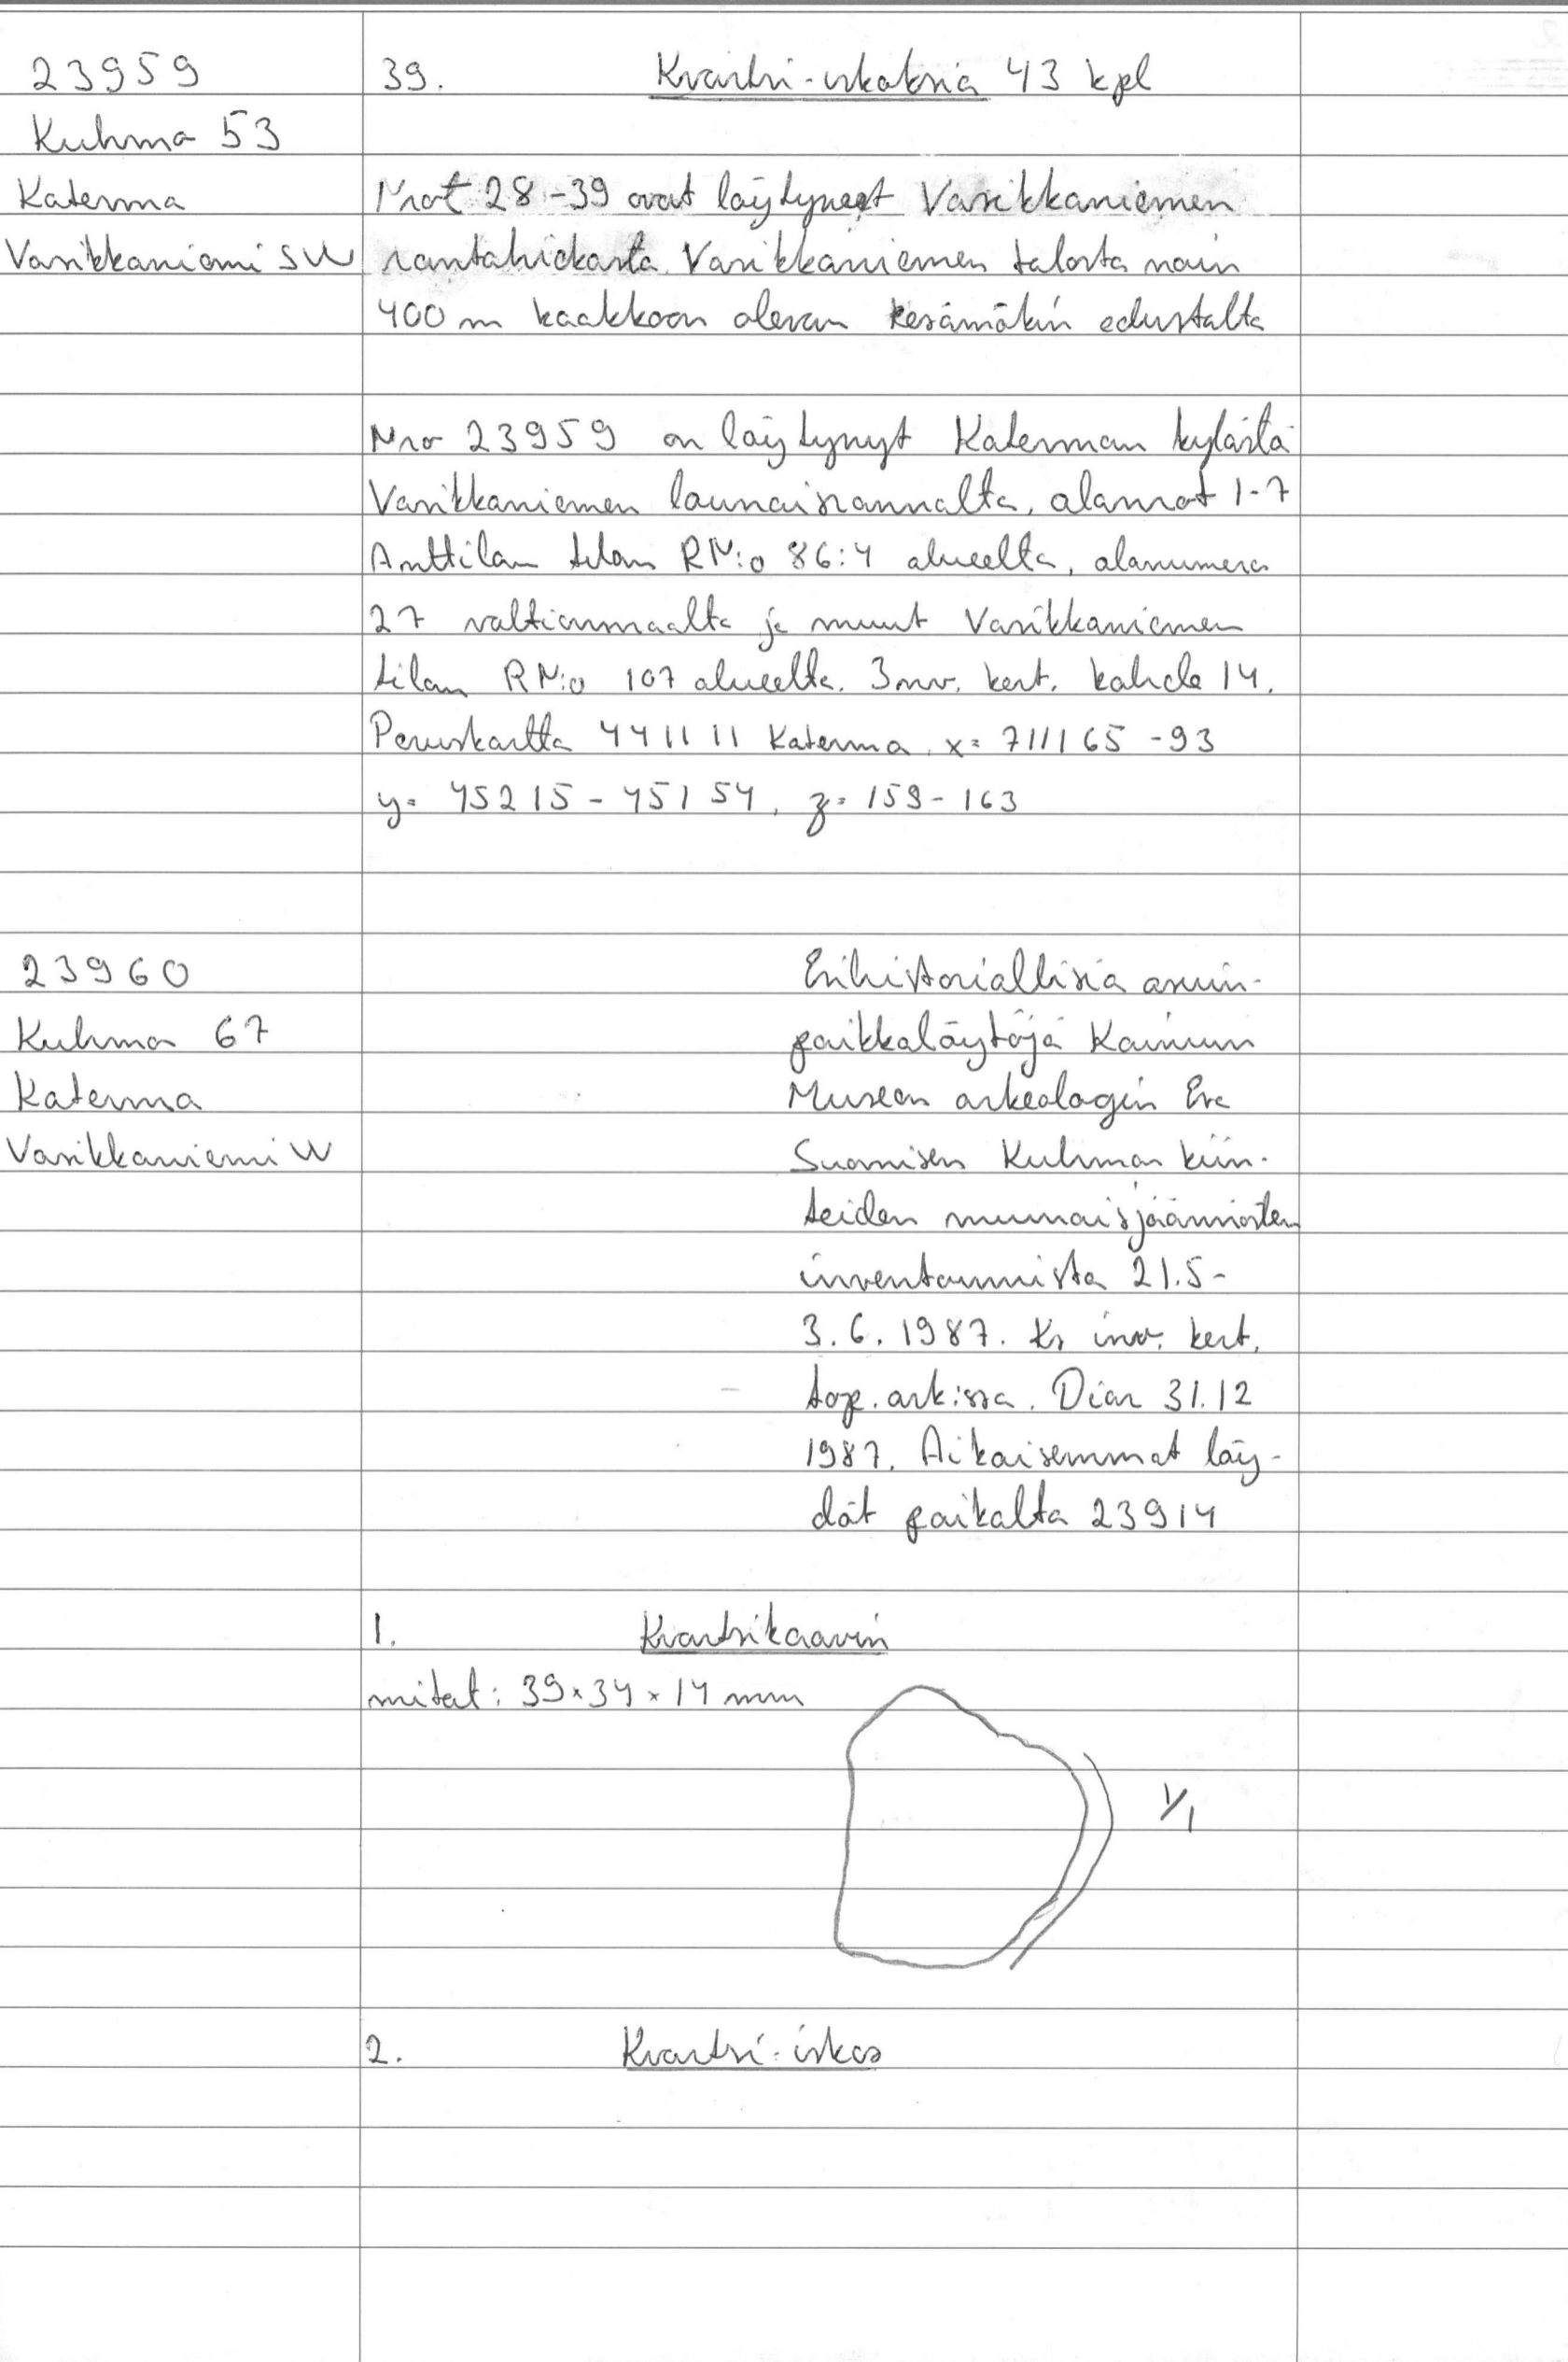 23959
Kuhmo 53
Katerma
Vasikkaniemi SW
39. Kvartsi-iskoksia 43 kpl
Nrot 28-39 ovat löytyneet Vasikkaniemen
rantahiekasta Vasikkaniemen talosta noin
400 m kaakkoon olevan kesämökin edustalta
Nro 23959 on löytynyt Katerman kylästä
Vasikkaniemen lounaisrannalta, alanrot 1-7
Anttilan tilan RN:o 86:4 alueelta, alanumero
27 valtionmaalta ja muut Vasikkaniemen
tilan RN:o 107 alueelta. Inv. kert. kohde 14.
Peruskartta 4411 11 Katerma, x= 7111 65 -93
y= 45215 - 45154, z= 159-163
23960
Kuhmo 67
Katerma
Vasikkaniemi W
Esihistoriallisia asuin-
paikkalöytöjä Kainuun
Museon arkeologin Esa
Suomisen Kuhmon kiin-
teiden muinaisjäännösten
inventoinnista 21.5-
3.6.1987. Ks inv. kert.
top. ark:issa. Diar 31.12
1987. Aikaisemmat löy-
döt paikalta 23914
1. Kvartsikaavin
mitat: 39x34x14 mm
1/1
2. Kvartsi-iskos